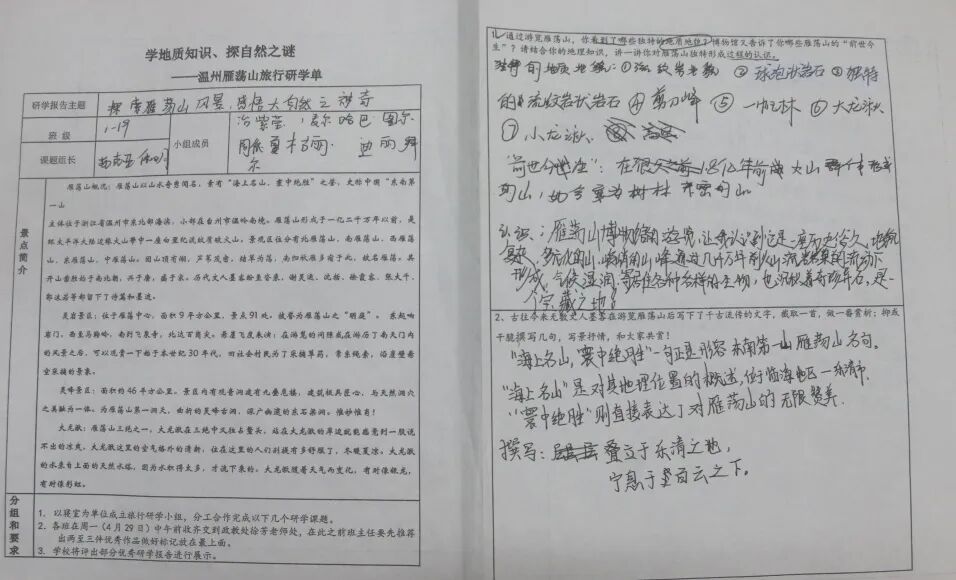 学地质知识、探自然之谜
——温州雁荡山旅行研学单
研学报告主题
探索雁荡山风景,感悟大自然之神奇
班 级
1-19
小组成员
课题组长
景点简介
雁荡山概况:雁荡山以山水奇秀闻名,素有“海上名山,寰中绝胜”之誉,史称中国“东南第
一山
主体位于浙江省温州市东北部海滨,小部在台州市温岭南境。雁荡山形成于一亿二千万年以前,是
环太平洋大陆边缘火山带中一座白垩纪流纹质破火山。景观区位分有北雁荡山、南雁荡山、西雁荡
山、东雁荡山、中雁荡山。因山顶有湖,芦苇茂密,结草为荡,南归秋雁多宿于此,故名雁荡。其
开山凿胜始于南北朝,兴于唐,盛于宋。历代文人墨客纷至沓来,谢灵运、沈括、徐霞客、张大千、
郭沫若等都留下了诗篇和墨迹。
灵岩景区:位于雁荡中心,面积9平方公里,景点91处,被誉为雁荡山之“明庭”。东起响
岩门,西至马鞍岭,南到飞泉寺,北达百岗尖。
可以观看一下始于本世纪30年代,田社会村民为了采摘草药,常系绳索,沿崖壁悬
空采摘的景象。
灵峰景区:面积约46平方公里。景区内有观音洞建有九叠危楼,建筑极具匠心,与天然洞穴
之美融为一体,为雁荡山第一洞天,曲折的灵峰古洞,深广幽邃的东石梁洞。惟妙惟肖!
大龙湫:雁荡山三绝之一,大龙湫在三绝中又独占鳌头,站在大龙湫的岸边就能感觉到一股说
不出的凉爽,大龙湫这里的空气格外的清新,住在这里的人们别提有多舒服了,冬暖夏凉。大龙湫
的水来自上面的天然水临,因为水积得太多,才流下来的。大龙湫随着天气而变化,有时像银龙,
有时像彩虹。
分组和要求
1、以寝室为单位成立旅行研学小组,分工合作完成以下几个研学课题。
2、各班在周一(4月29日)中午前收齐交到政教处徐芳老师处,在此之前班主任要先推荐
出两至三件优秀作品做好标记放在最上面。
3、学校将评出部分优秀研学报告进行展示。
1、通过游览雁荡山,你看到了哪些独特的地质地貌?博物馆又告诉了你哪些雁荡山的“前世今
生”?请结合你的地理知识,讲一讲你对雁荡山独特形成过程的认识。
独特的地质地貌:①流纹岩岩貌 ②球泡状岩石 ③独特
的流纹岩状岩石 ④剪刀峰 ⑤一帆林 ⑥大龙湫
⑦小龙湫
“前世今生”:在 1.8亿年前成火山
的山,如今变为树林茂密的山
认识:雁荡山博物馆的游览,让我认识到这是一座历史悠久,
形成,气候湿润,寄居住各种各样的生物,也沉积着奇珍异石,是一
个宝藏之地!
2、古往今来无数文人墨客在游览雁荡山后写下了千古流传的文字,截取一首,做一番赏析;抑或
干脆撰写几句,写景抒情,和大家共赏!
“海上名山,寰中绝胜”一句正是形容东南第一山雁荡山名句。
“海上名山”是对其地理位置的概述,位于临海地区—乐清市.
“寰中绝胜”则直接表达了对雁荡山的无限赞美.
撰写: 叠立于乐清之地,
宁息于 白云之下。